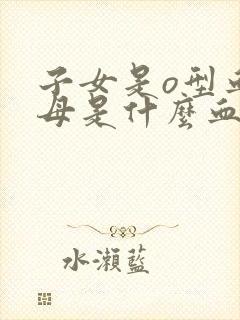 子女是o型血
母是什麼血
水瀨藍